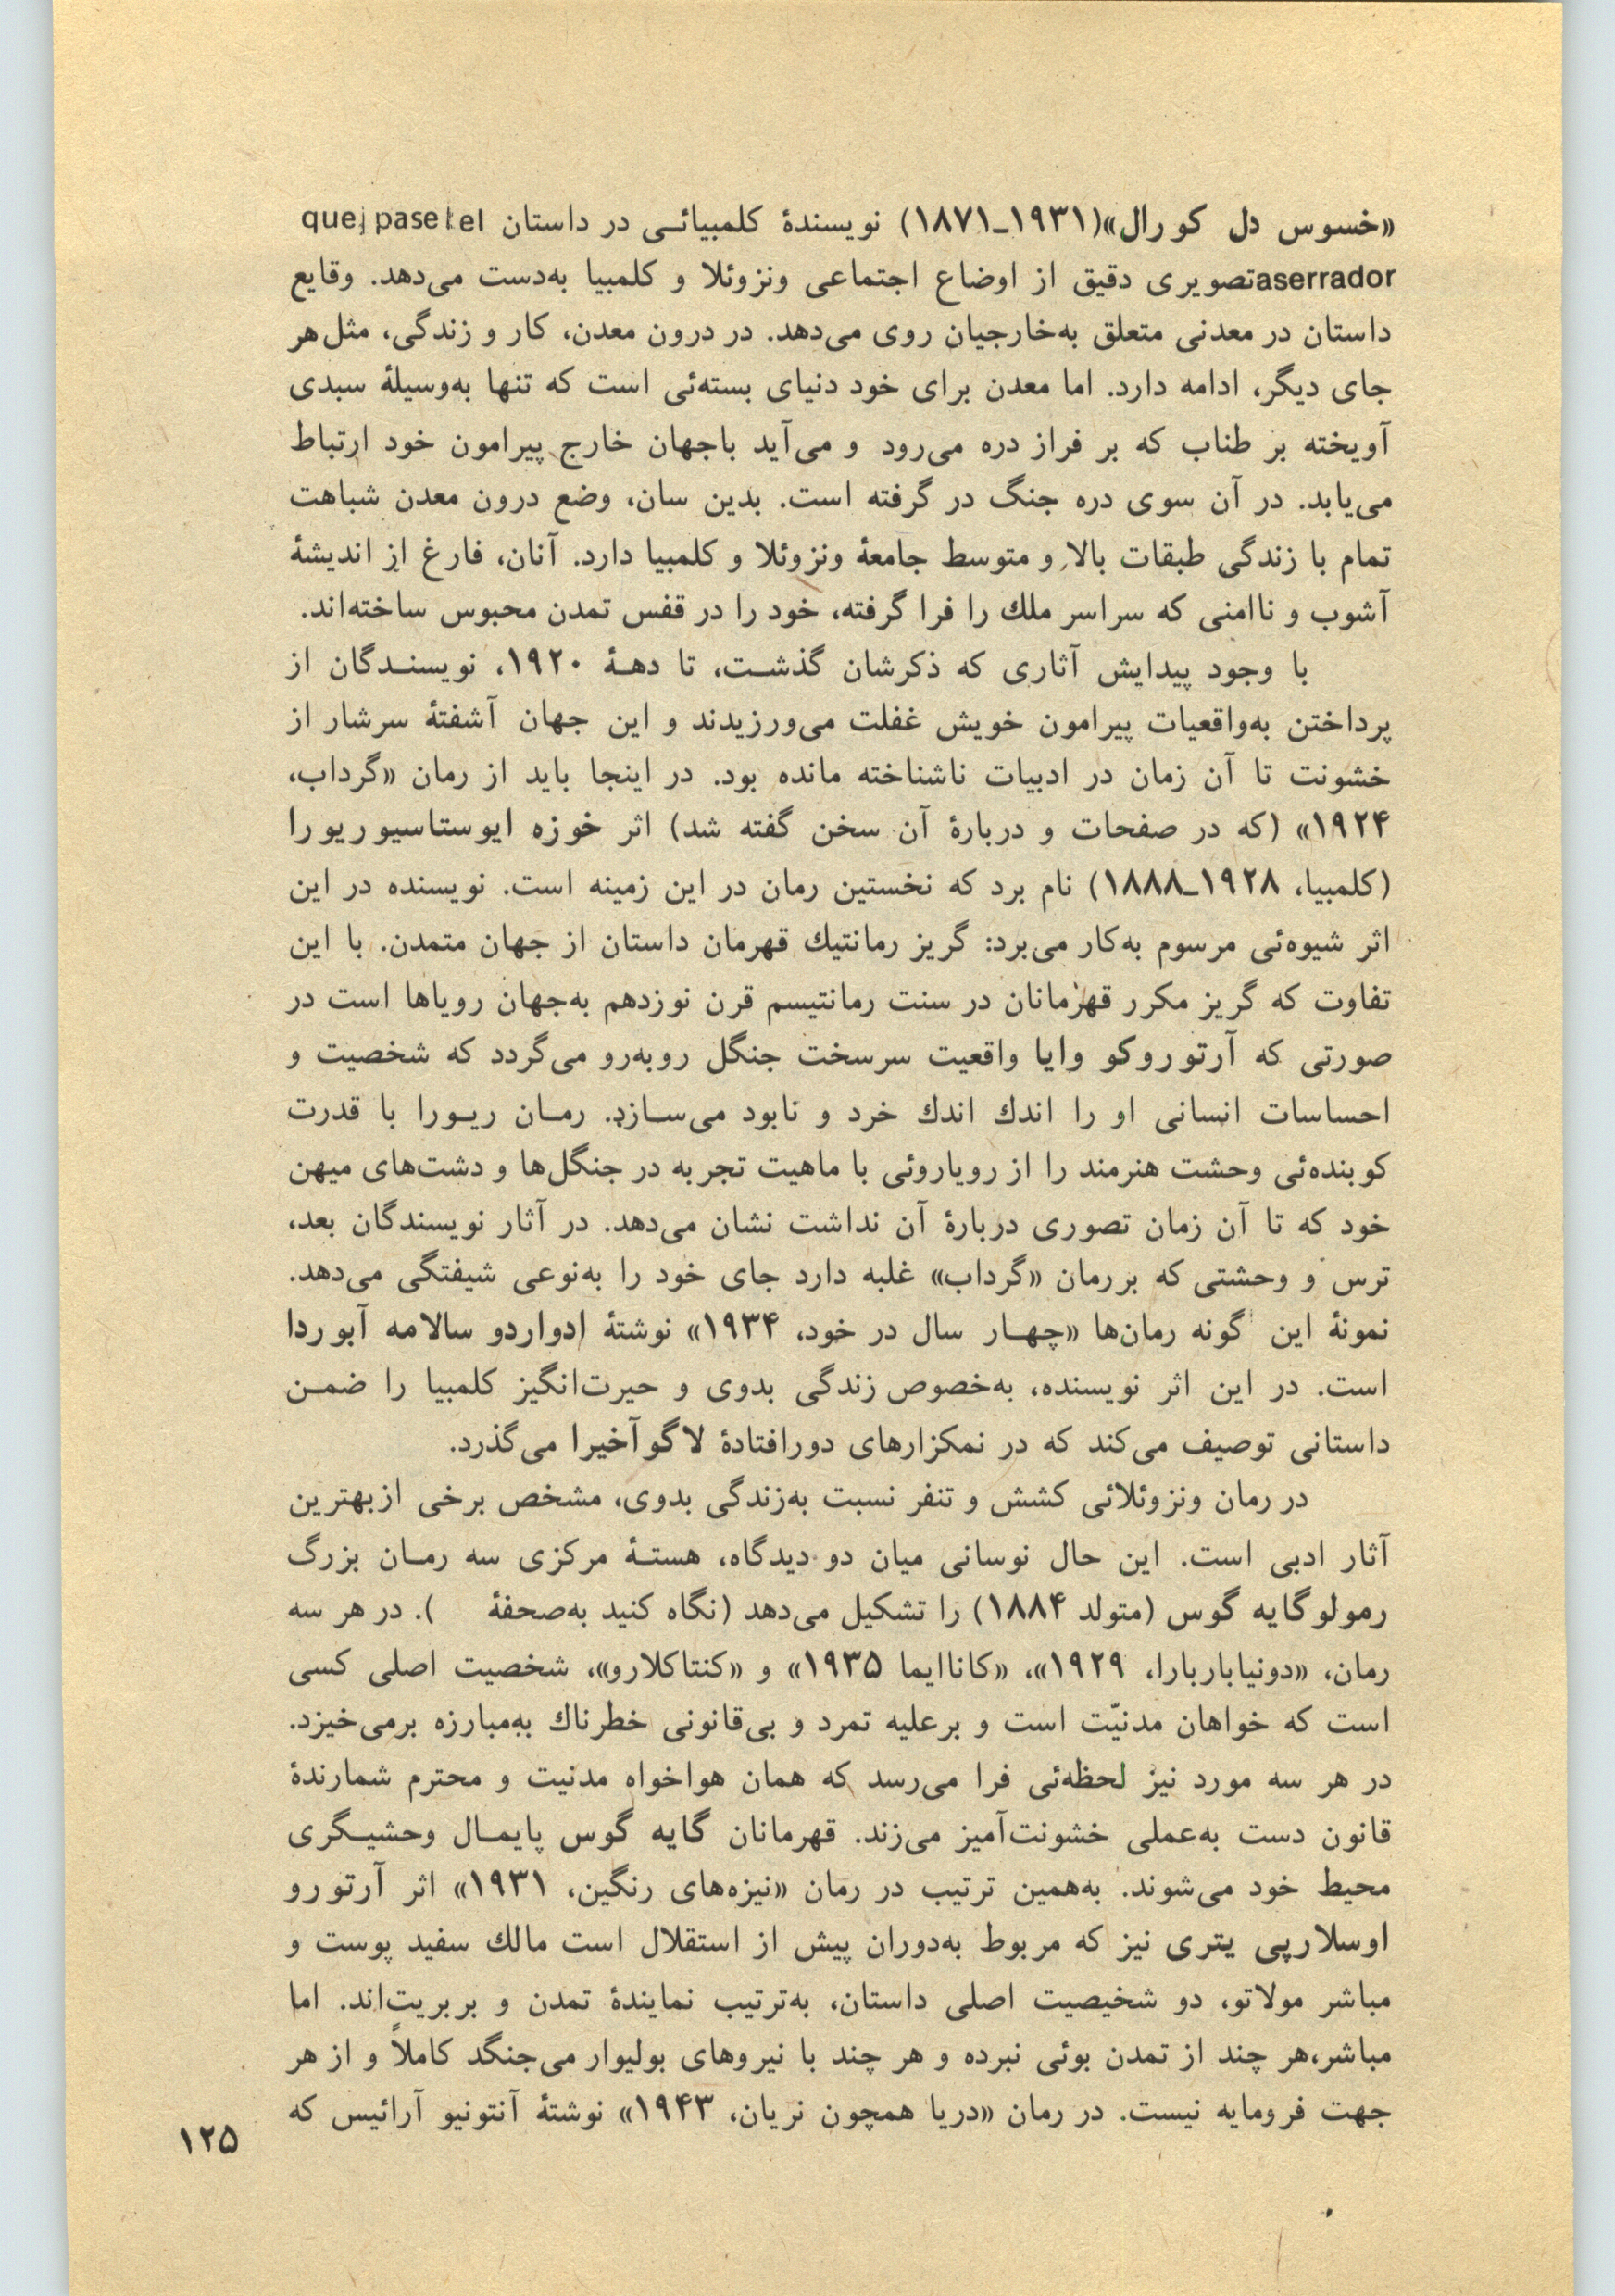 «خسوس دل کورال»(۱۹۳۱ـ۱۸۷۱) نویسندهٔ کلمبیائی در داستان que pase el
aserrador تصویری دقیق از اوضاع اجتماعی ونزوئلا و کلمبیا به‌دست می‌دهد. وقایع
داستان در معدنی متعلق به‌خارجیان روی می‌دهد. در درون معدن، کار و زندگی، مثل هر
جای دیگر، ادامه دارد. اما معدن برای خود دنیای بسته‌ئی است که تنها به‌وسیلهٔ سبدی
آویخته بر طناب که بر فراز دره می‌رود و می‌آید باجهان خارج پیرامون خود ارتباط
می‌یابد. در آن سوی دره جنگ در گرفته است. بدین سان، وضع درون معدن شباهت
تمام با زندگی طبقات بالا و متوسط جامعهٔ ونزوئلا و کلمبیا دارد. آنان، فارغ از اندیشهٔ
آشوب و ناامنی که سراسر ملك را فرا گرفته، خود را در قفس تمدن محبوس ساخته‌اند.
با وجود پیدایش آثاری که ذکرشان گذشت، تا دهۀ ۱۹۲۰، نویسندگان از
پرداختن به‌واقعیات پیرامون خویش غفلت می‌ورزیدند و این جهان آشفتهٔ سرشار از
خشونت تا آن زمان در ادبیات ناشناخته مانده بود. در اینجا باید از رمان «گرداب،
۱۹۲۴» (که در صفحات و دربارهٔ آن سخن گفته شد) اثر خوزه ایوستاسیوریورا
(کلمبیا، ۱۹۲۸ـ۱۸۸۸) نام برد که نخستین رمان در این زمینه است. نویسنده در این
اثر شیوه‌ئی مرسوم به‌کار می‌برد: گریز رمانتیك قهرمان داستان از جهان متمدن. با این
تفاوت که گریز مکرر قهرمانان در سنت رمانتیسم قرن نوزدهم به‌جهان رویاها است در
صورتی که آرتوروکو وایا واقعیت سرسخت جنگل روبه‌رو می‌گردد که شخصیت و
احساسات انسانی او را اندك اندك خرد و نابود می‌سازد. رمان ریورا با قدرت
کوبنده‌ئی وحشت هنرمند را از رویاروئی با ماهیت تجربه در جنگل‌ها و دشت‌های میهن
خود که تا آن زمان تصوری دربارهٔ آن نداشت نشان می‌دهد. در آثار نویسندگان بعد،
ترس و وحشتی که بررمان «گرداب» غلبه دارد جای خود را به‌نوعی شیفتگی می‌دهد.
نمونهٔ این گونه رمان‌ها «چهار سال در خود، ۱۹۳۴» نوشتهٔ ادواردو سالامه آبوردا
است. در این اثر نویسنده، به‌خصوص زندگی بدوی و حیرت‌انگیز کلمبیا را ضمن
داستانی توصیف می‌کند که در نمکزارهای دورافتادهٔ لاگوآخیرا می‌گذرد.
در رمان ونزوئلائی کشش و تنفر نسبت به‌زندگی بدوی، مشخص برخی ازبهترین
آثار ادبی است. این حال نوسانی میان دو دیدگاه، هستهٔ مرکزی سه رمان بزرگ
رمولوگایه گوس (متولد ۱۸۸۴) را تشکیل می‌دهد (نگاه کنید به‌صفحهٔ    ). در هر سه
رمان، «دونیاباربارا، ۱۹۲۹»، «کاناایما ۱۹۳۵» و «کنتاکلارو»، شخصیت اصلی کسی
است که خواهان مدنیّت است و برعلیه تمرد و بی‌قانونی خطرناك به‌مبارزه برمی‌خیزد.
در هر سه مورد نیز لحظه‌ئی فرا می‌رسد که همان هواخواه مدنیت و محترم شمارندهٔ
قانون دست به‌عملی خشونت‌آمیز می‌زند. قهرمانان گایه گوس پایمال وحشیگری
محیط خود می‌شوند. به‌همین ترتیب در رمان «نیزه‌های رنگین، ۱۹۳۱» اثر آرتورو
اوسلارپی یتری نیز که مربوط به‌دوران پیش از استقلال است مالك سفید پوست و
مباشر مولاتو، دو شخیصیت اصلی داستان، به‌ترتیب نمایندهٔ تمدن و بربریت‌اند. اما
مباشر،هر چند از تمدن بوئی نبرده و هر چند با نیروهای بولیوار می‌جنگد کاملاً و از هر
جهت فرومایه نیست. در رمان «دریا همچون نریان، ۱۹۴۳» نوشتهٔ آنتونیو آرائیس که
۱۲۵